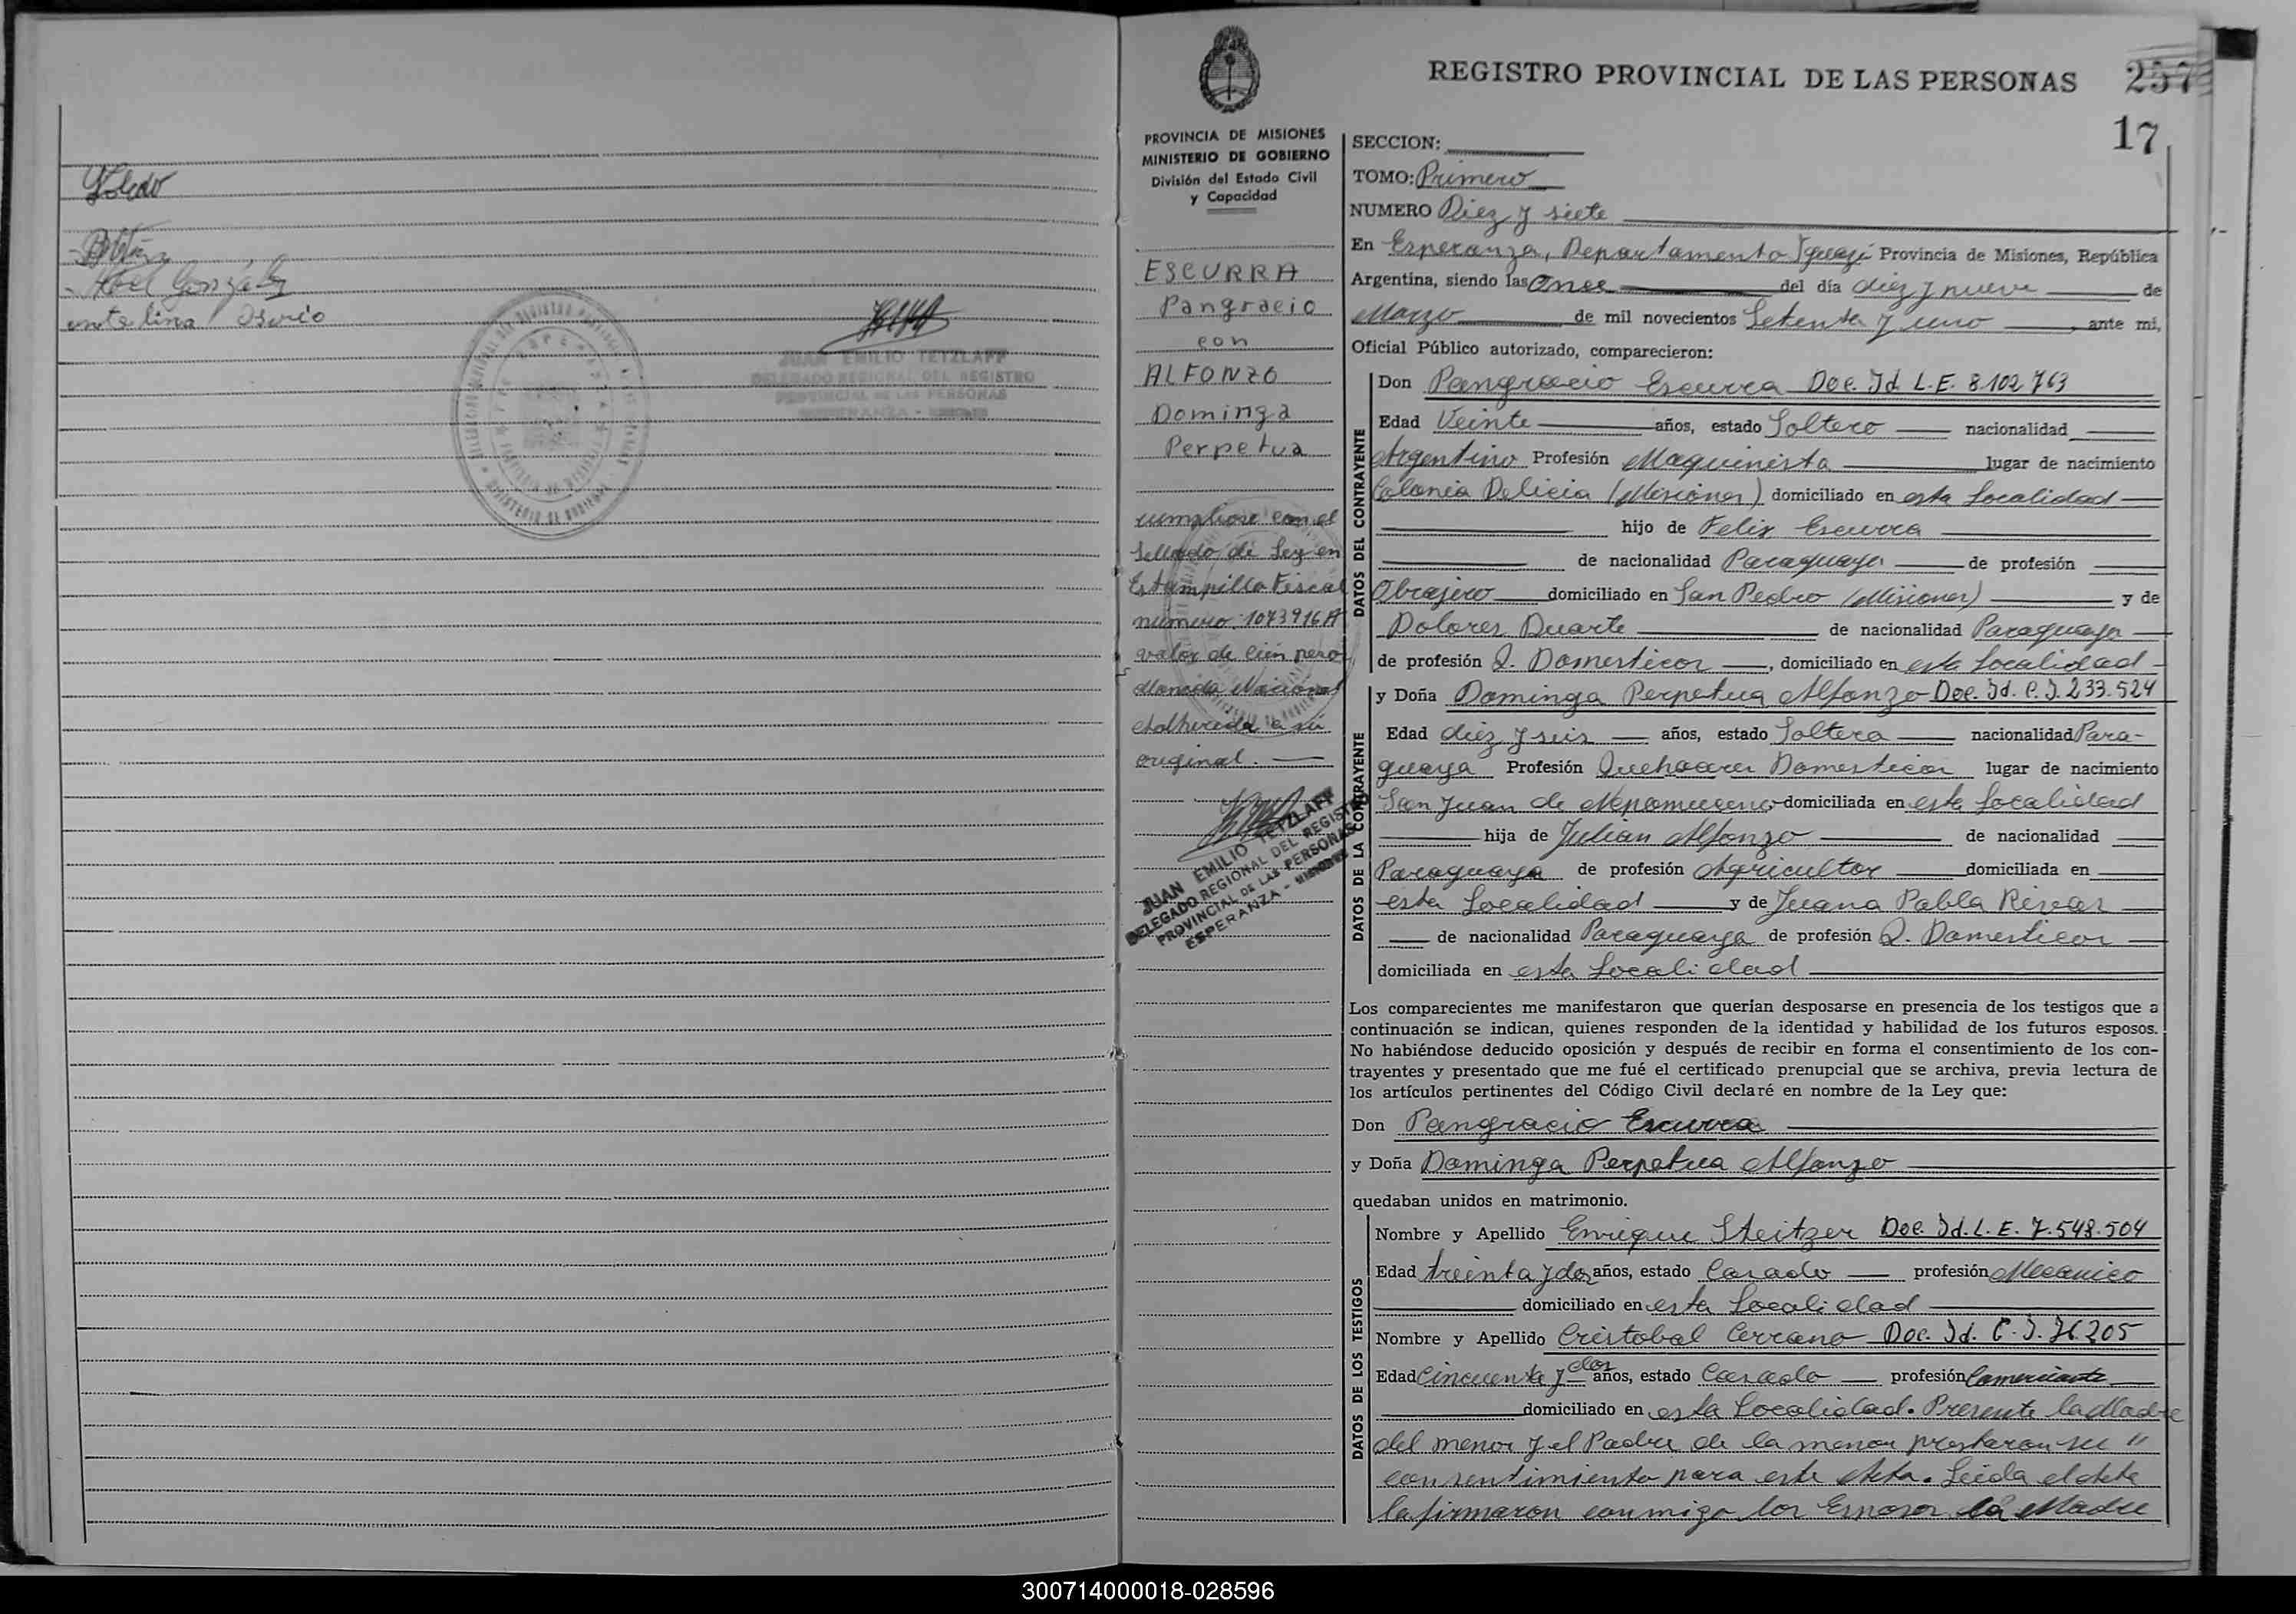 Toledo
Abel González
JUAN EMILIO TETZLAFF
DELEGADO REGIONAL DEL REGISTRO
PROVINCIAL DE LAS PERSONAS
ESPERANZA - MISIONES
PROVINCIA DE MISIONES
MINISTERIO DE GOBIERNO
División del Estado Civil
y Capacidad
ESCURRA
Pangracio
con
ALFONZO
Dominga
Perpetua
cumpliose con el
Sellado de Ley en
Estampilla Fiscal
numero: 1073916 A
valor de cien peso
Moneda Nacional
adherida a su
original. —
JUAN EMILIO TETZLAFF
DELEGADO REGIONAL DEL REGISTRO
PROVINCIAL DE LAS PERSONAS
ESPERANZA - MISIONES
REGISTRO PROVINCIAL DE LAS PERSONAS 257
17
SECCION:
TOMO: Primero
NUMERO Diez y siete
En Esperanza, Departamento Iguazú Provincia de Misiones, República
Argentina, siendo las Once del día diez y nueve de
Marzo de mil novecientos Setenta y uno, ante mi,
Oficial Público autorizado, comparecieron:
DATOS DEL CONTRAYENTE
Don Pangracio Escurra Doc. Id. L.E. 8.102.763
Edad Veinte años, estado Soltero nacionalidad
Argentino Profesión Maquinista lugar de nacimiento
Colonia Delicia (Misiones) domiciliado en esta Localidad
hijo de Felix Escurra
de nacionalidad Paraguaya de profesión
Obrajero domiciliado en San Pedro (Misiones) y de
Dolores Duarte de nacionalidad Paraguaya
de profesión Q. Domesticos, domiciliado en esta Localidad
DATOS DE LA CONTRAYENTE
y Doña Dominga Perpetua Alfonzo Doc. Id. C.I. 233.524
Edad diez y seis años, estado Soltera nacionalidad Para-
guaya Profesión Quehaceres Domesticos lugar de nacimiento
San Juan de Nepomuceno domiciliada en esta Localidad
hija de Julian Alfonzo de nacionalidad
Paraguaya de profesión Agricultor domiciliada en
esta Localidad y de Juana Pabla Rivas
de nacionalidad Paraguaya de profesión Q. Domesticos
domiciliada en esta Localidad
Los comparecientes me manifestaron que querían desposarse en presencia de los testigos que a
continuación se indican, quienes responden de la identidad y habilidad de los futuros esposos.
No habiéndose deducido oposición y después de recibir en forma el consentimiento de los con-
trayentes y presentado que me fué el certificado prenupcial que se archiva, previa lectura de
los artículos pertinentes del Código Civil declaré en nombre de la Ley que:
Don Pangracio Escurra
y Doña Dominga Perpetua Alfonzo
quedaban unidos en matrimonio.
DATOS DE LOS TESTIGOS
Nombre y Apellido Enrique Steitzer Doc. Id. L.E. 7.548.504
Edad treinta y dos años, estado Casado profesión Mecanico
domiciliado en esta Localidad
Nombre y Apellido Cristobal Cerrano Doc. Id. C.I. 76.205
Edad Cincuenta y dos años, estado Casado profesión Comerciante
domiciliado en esta Localidad. Presente la Madre
del menor y el Padre de la menor prestaron su "
consentimiento para este Acta. Leida el Acta
la firmaron conmigo los Esposos la Madre
300714000018-028596